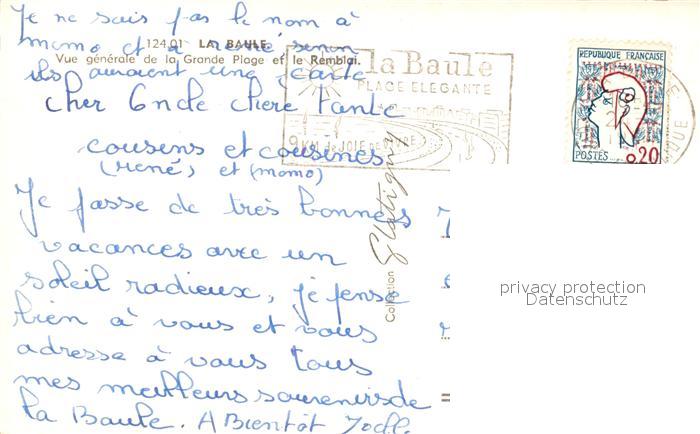 Je ne sais pas le nom à
momo et a rené sinon
124.01 LA BAULE
Vue générale de la Grande Plage et le Remblai.
ils auraient une carte
cher Oncle chère tante
cousins et cousines
(rené) et (momo)
Je passe de très bonnes
vacances avec un
soleil radieux, je pense
bien à vous et vous
adresse à vous tous
mes meilleurs souvenirs de
la Baule. A Bientôt Joël.
la Baule
PLAGE ELEGANTE
9 KM de JOIE DE VIVRE
Collection
REPUBLIQUE FRANÇAISE
POSTES
0,20
privacy protection
Datenschutz